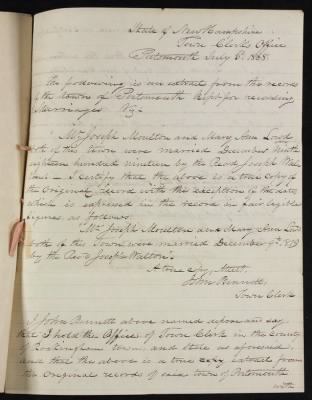 State of New Hampshire
Town Clerk's Office
Portsmouth July 6th 1868.
The following is an extract from the records
of the town of Portsmouth Kept for recording
Marriages Viz
"Mr Joseph Moulton and Mary Ann Lord
both of this town were married December Ninth
eighteen hundred nineteen by the Revd Joseph Wal
ton" — I certify that the above is a true copy of
the Original Record with the exception to the date
which is expressed in the record in fair legible
figures, as follows:
"Mr Joseph Moulton and Mary Ann Lord
both of this Town were married December 9th 1819
by the Revd Joseph Walton"
A true copy Attest,
John Bennett,
Town Clerk
I John Bennett above named depose and say
that I hold the Office of Town Clerk in the County
of Rockingham town and State as aforesaid
and that the above is a true copy extract from
the Original records of said town of Portsmouth